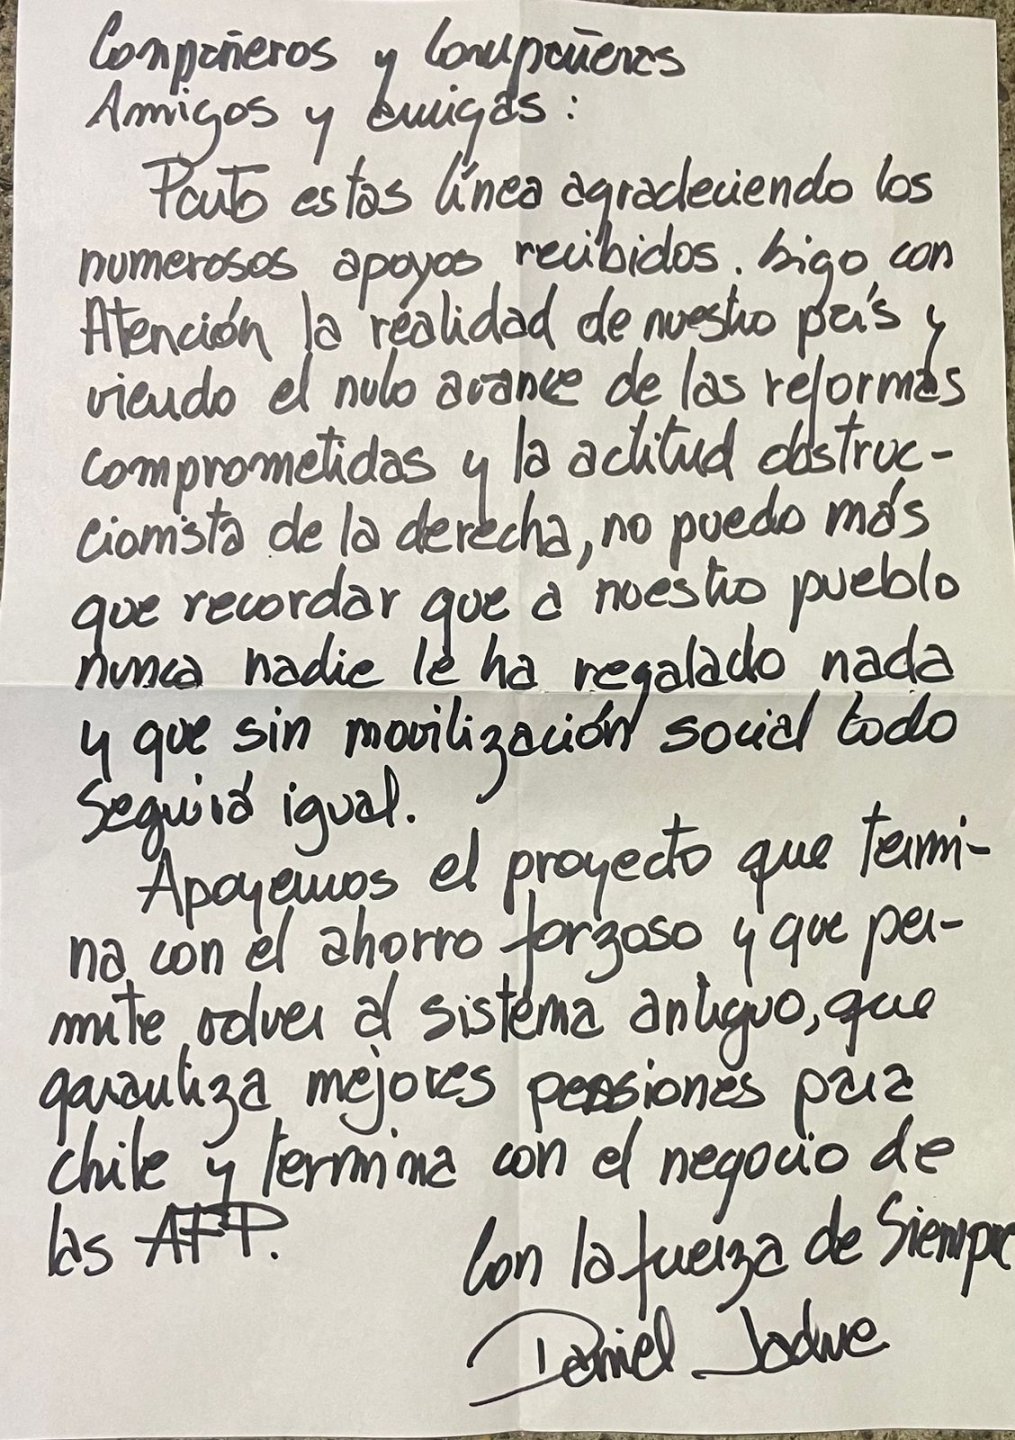 Compañeros y Compañeras
Amigos y amigas:
Parto estas línea agradeciendo los
numerosos apoyos recibidos. Sigo con
Atención la realidad de nuestro país y
viendo el nulo avance de las reformas
comprometidas y la actitud obstruc-
cionista de la derecha, no puedo más
que recordar que a nuestro pueblo
nunca nadie le ha regalado nada
y que sin movilización social todo
seguirá igual.
Apoyemos el proyecto que termi-
na con el ahorro forzoso y que per-
mite volver al sistema antiguo, que
garantiza mejores pensiones para
Chile y termina con el negocio de
las AFP.
Con la fuerza de Siempre
Daniel Jadue